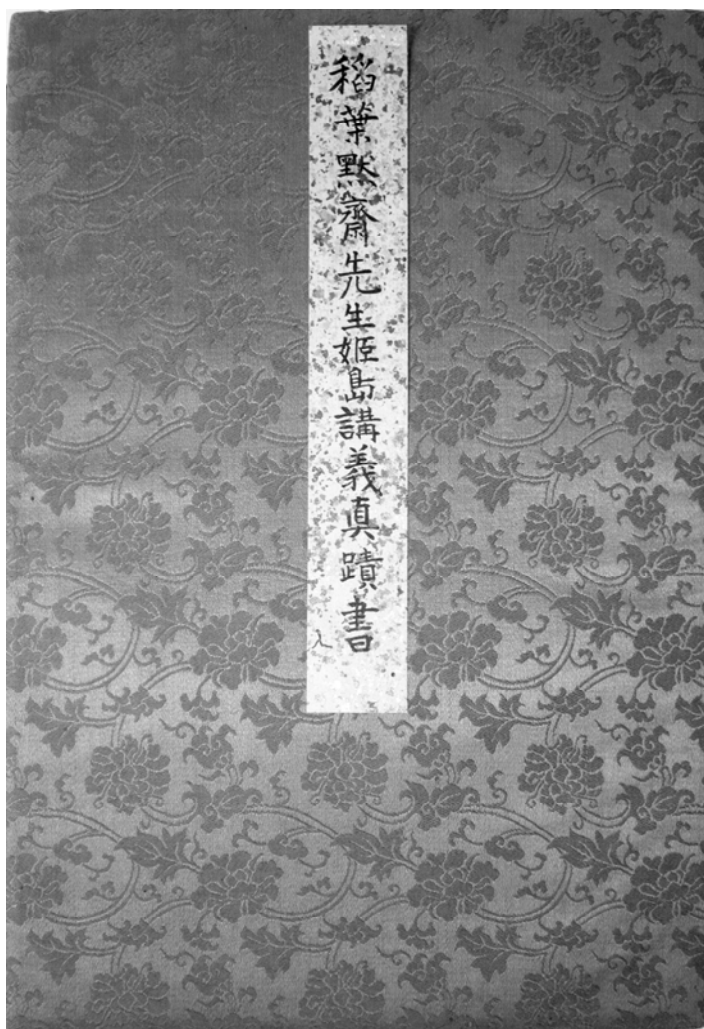 稻葉黙齋先生姫島講義真蹟書